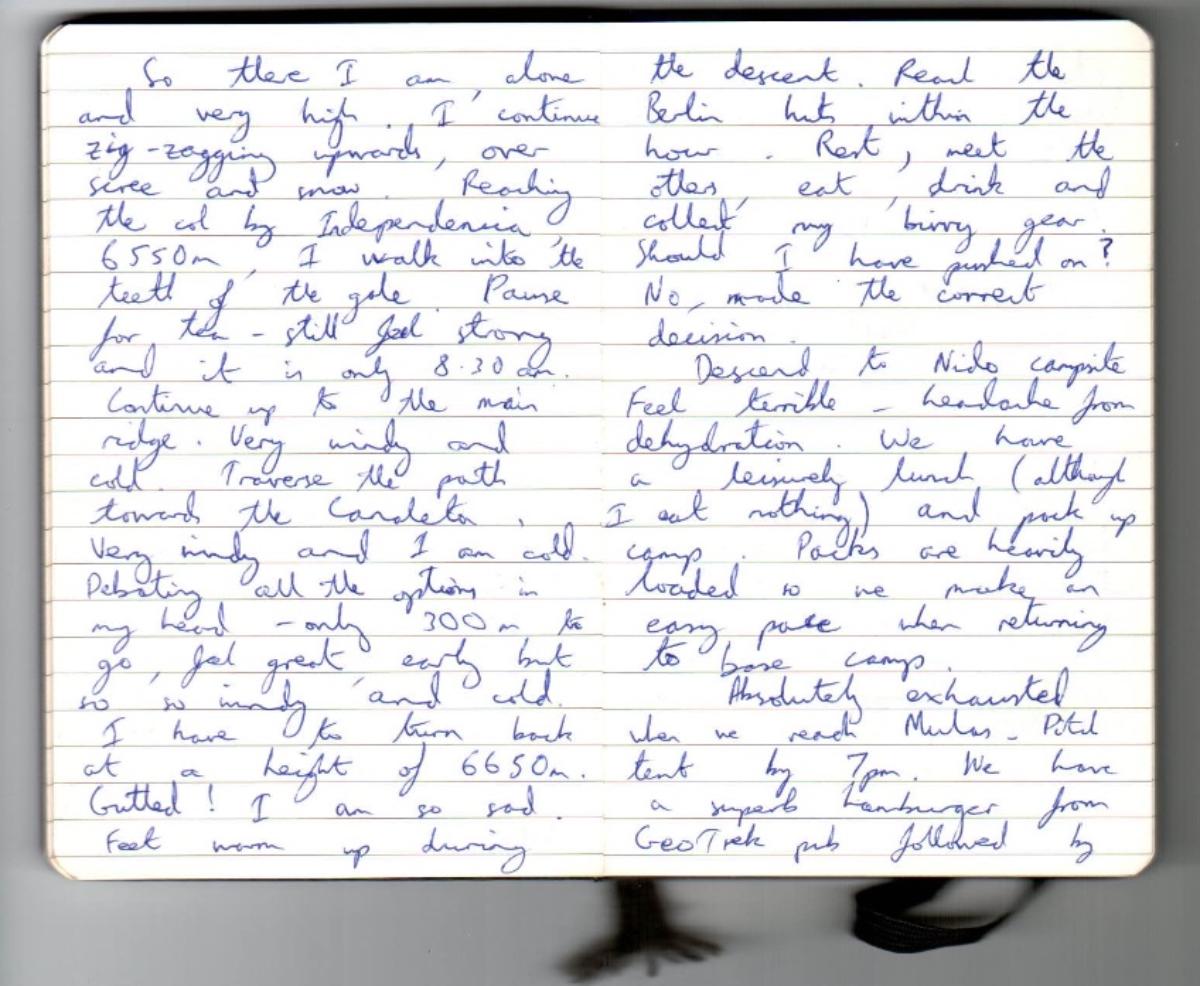 So there I am, alone
and very high. I continue
zig-zagging upwards, over
scree and snow. Reaching
the col by Independencia,
6550m, I walk into the
teeth of the gale. Pause
for tea - still feel strong
and it is only 8.30 am.
Continue up to the main
ridge. Very windy and
cold. Traverse the path
towards the Canaleta.
Very windy and I am cold.
Debating all the options in
my head - only 300m to
go, feel great, early but
so so windy and cold.
I have to turn back
at a height of 6650m.
Gutted! I am so sad.
Feet warm up during
the descent. Reach the
Berlin huts within the
hour. Rest, meet the
others, eat, drink and
collect my bivvy gear.
Should I have pushed on?
No, made the correct
decision.
Descend to Nido campsite
Feel terrible - headache from
dehydration. We have
a leisurely lunch (although
I eat nothing) and pack up
camp. Packs are heavily
loaded so we make an
easy pace when returning
to base camp.
Absolutely exhausted
when we reach Mulas. Pitch
tent by 7pm. We have
a superb hamburger from
GeoTrek pub followed by